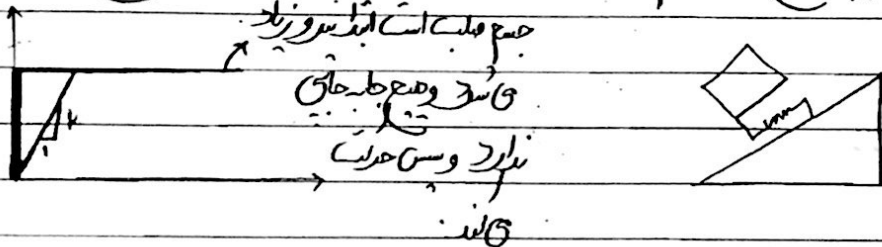 جسم صلب است ابتدا نیرو زیاد
می‌شود و هیچ جابه‌جایی
ندارد و سپس حرکت
می‌کند.
k
۱